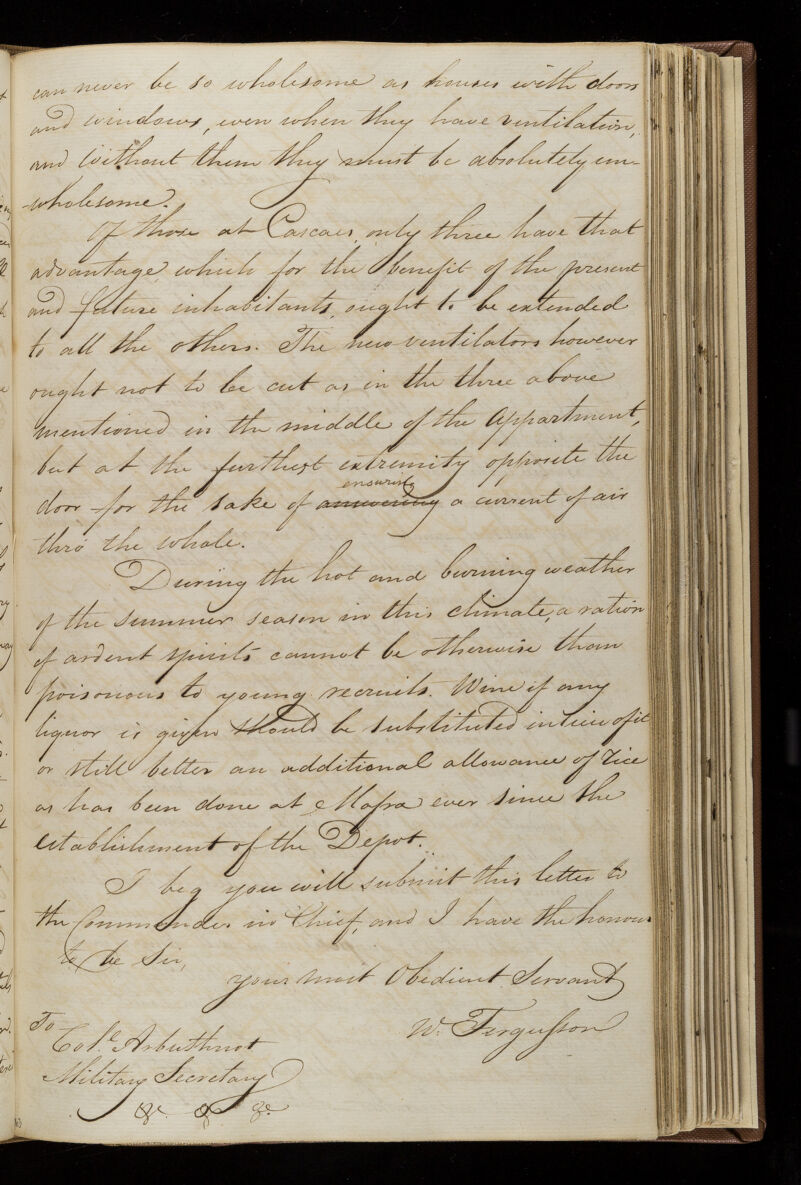 can never be so wholesome as houses with doors
and windows, even when they have ventilation,
and without them they must be absolutely un-
-wholesome.
Of those at Cascaes, only three have that
advantage, which for the benefit of the present
and future inhabitants, ought to be extended
to all the others. The new ventilators however
ought not to be cut as in the three above
mentioned in the middle of the appartment,
but at the furthest extremity opposite the
door for the sake of ensuring a current of air
thro' the whole.
During the hot and burning weather
of the summer season in this climate, a ration
of ardent spirits cannot be otherwise than
poisonous to young recruits. Wine if any
liquor is given should be substituted in lieu of it
or still better an additional allowance of rice
as has been done at Mafra ever since the
establishment of the Depot.
I beg you will submit this letter to
the Commander in Chief, and I have the honour
to be Sir,
your most Obedient Servant
W. Fergusson
To
Col.l Arbuthnot
Military Secretary
&c. &c. &c.